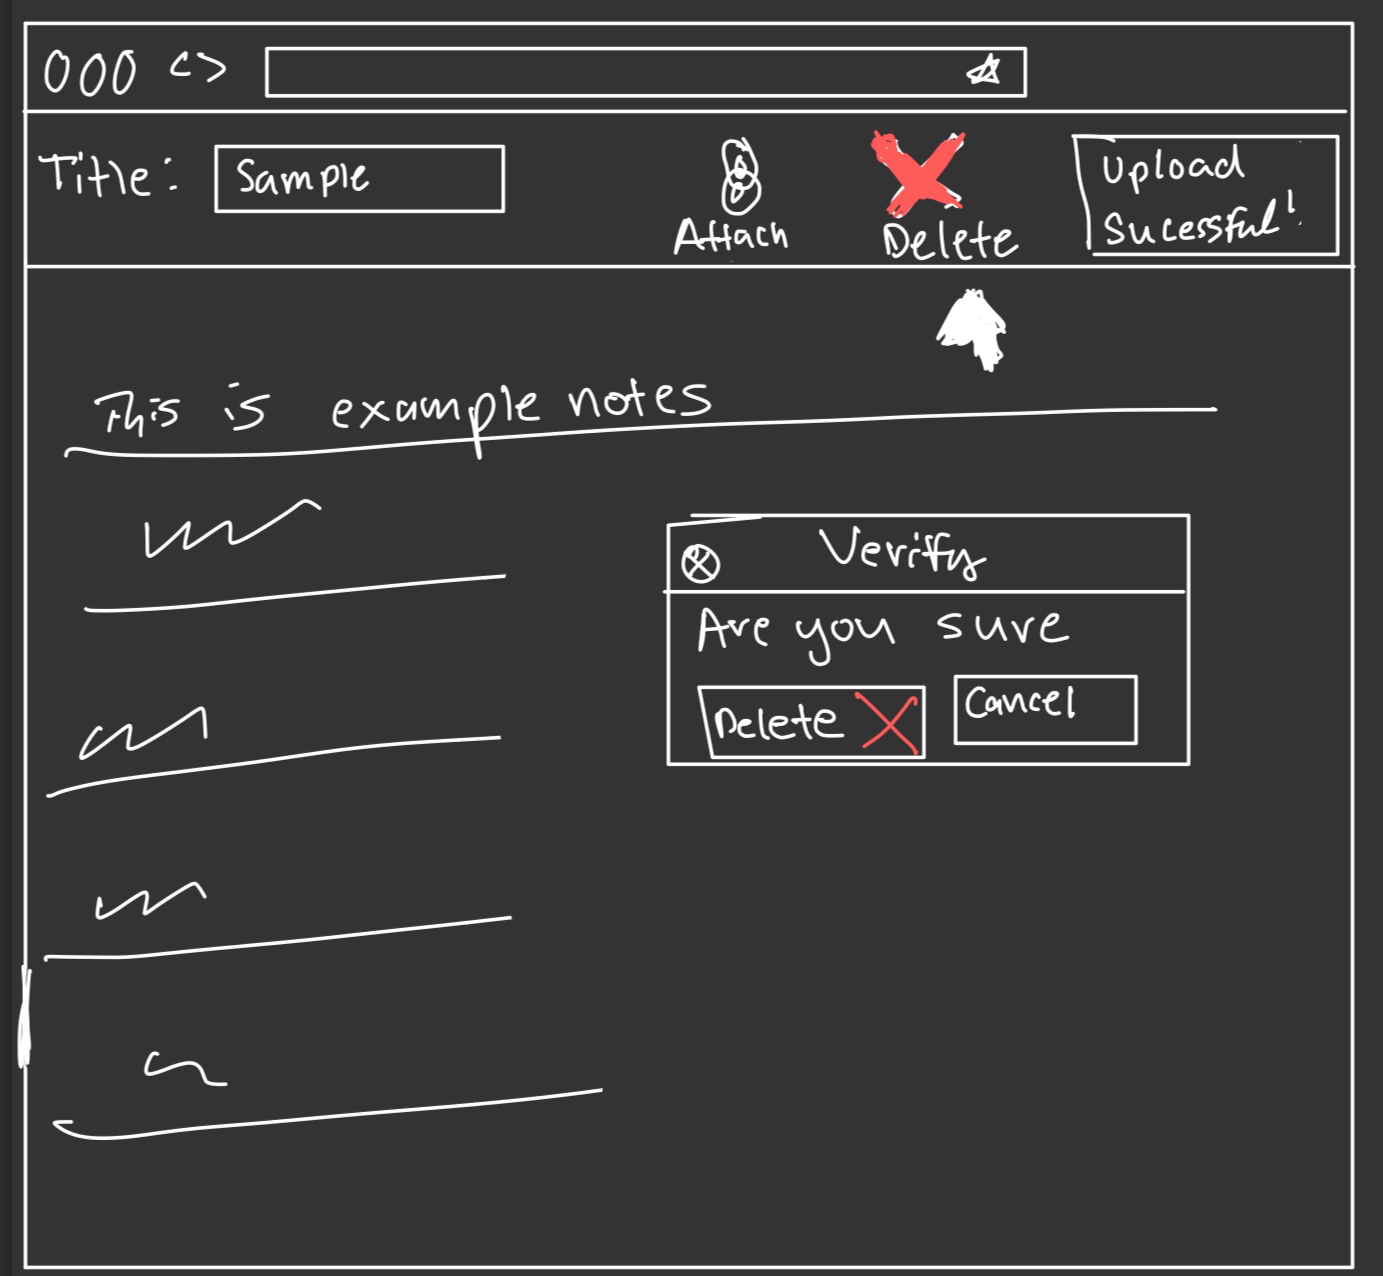 Title: Sample
Attach
Delete
Upload
Sucessful!
This is example notes
Verify
Are you sure
Delete
Cancel